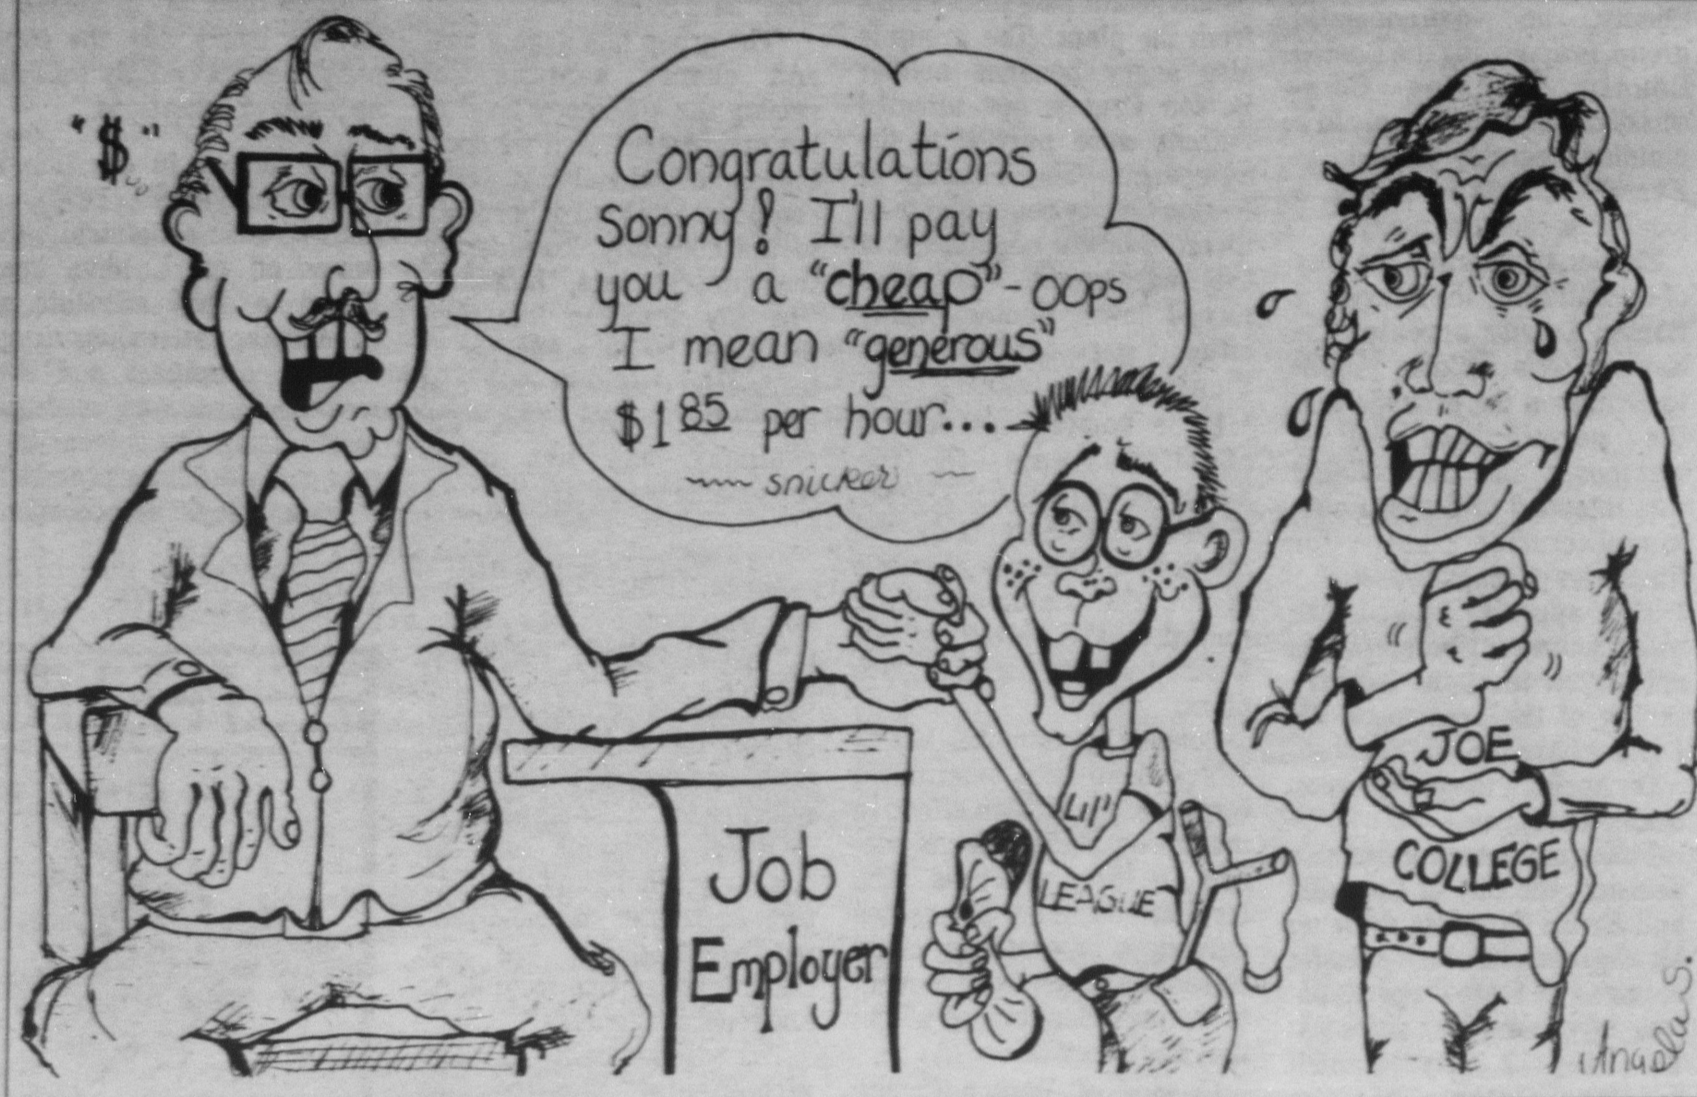 "$"
Congratulations
sonny! I'll pay
you a "cheap"-oops
I mean "generous"
$1 85 per hour...
snicker
Job
Employer
LIL'
LEAGUE
JOE
COLLEGE
Angela S.